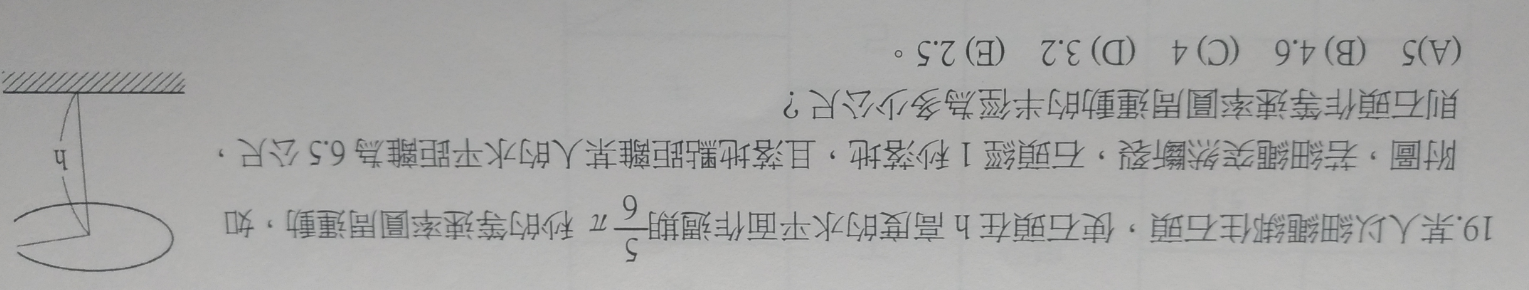 19.某人以細繩綁住石頭，使石頭在 h 高度的水平面作週期5/6 π 秒的等速率圓周運動，如
附圖，若細繩突然斷裂，石頭經 1 秒落地，且落地點距離某人的水平距離為 6.5 公尺，
則石頭作等速率圓周運動的半徑為多少公尺？
(A)5 (B) 4.6 (C) 4 (D) 3.2 (E) 2.5。
h